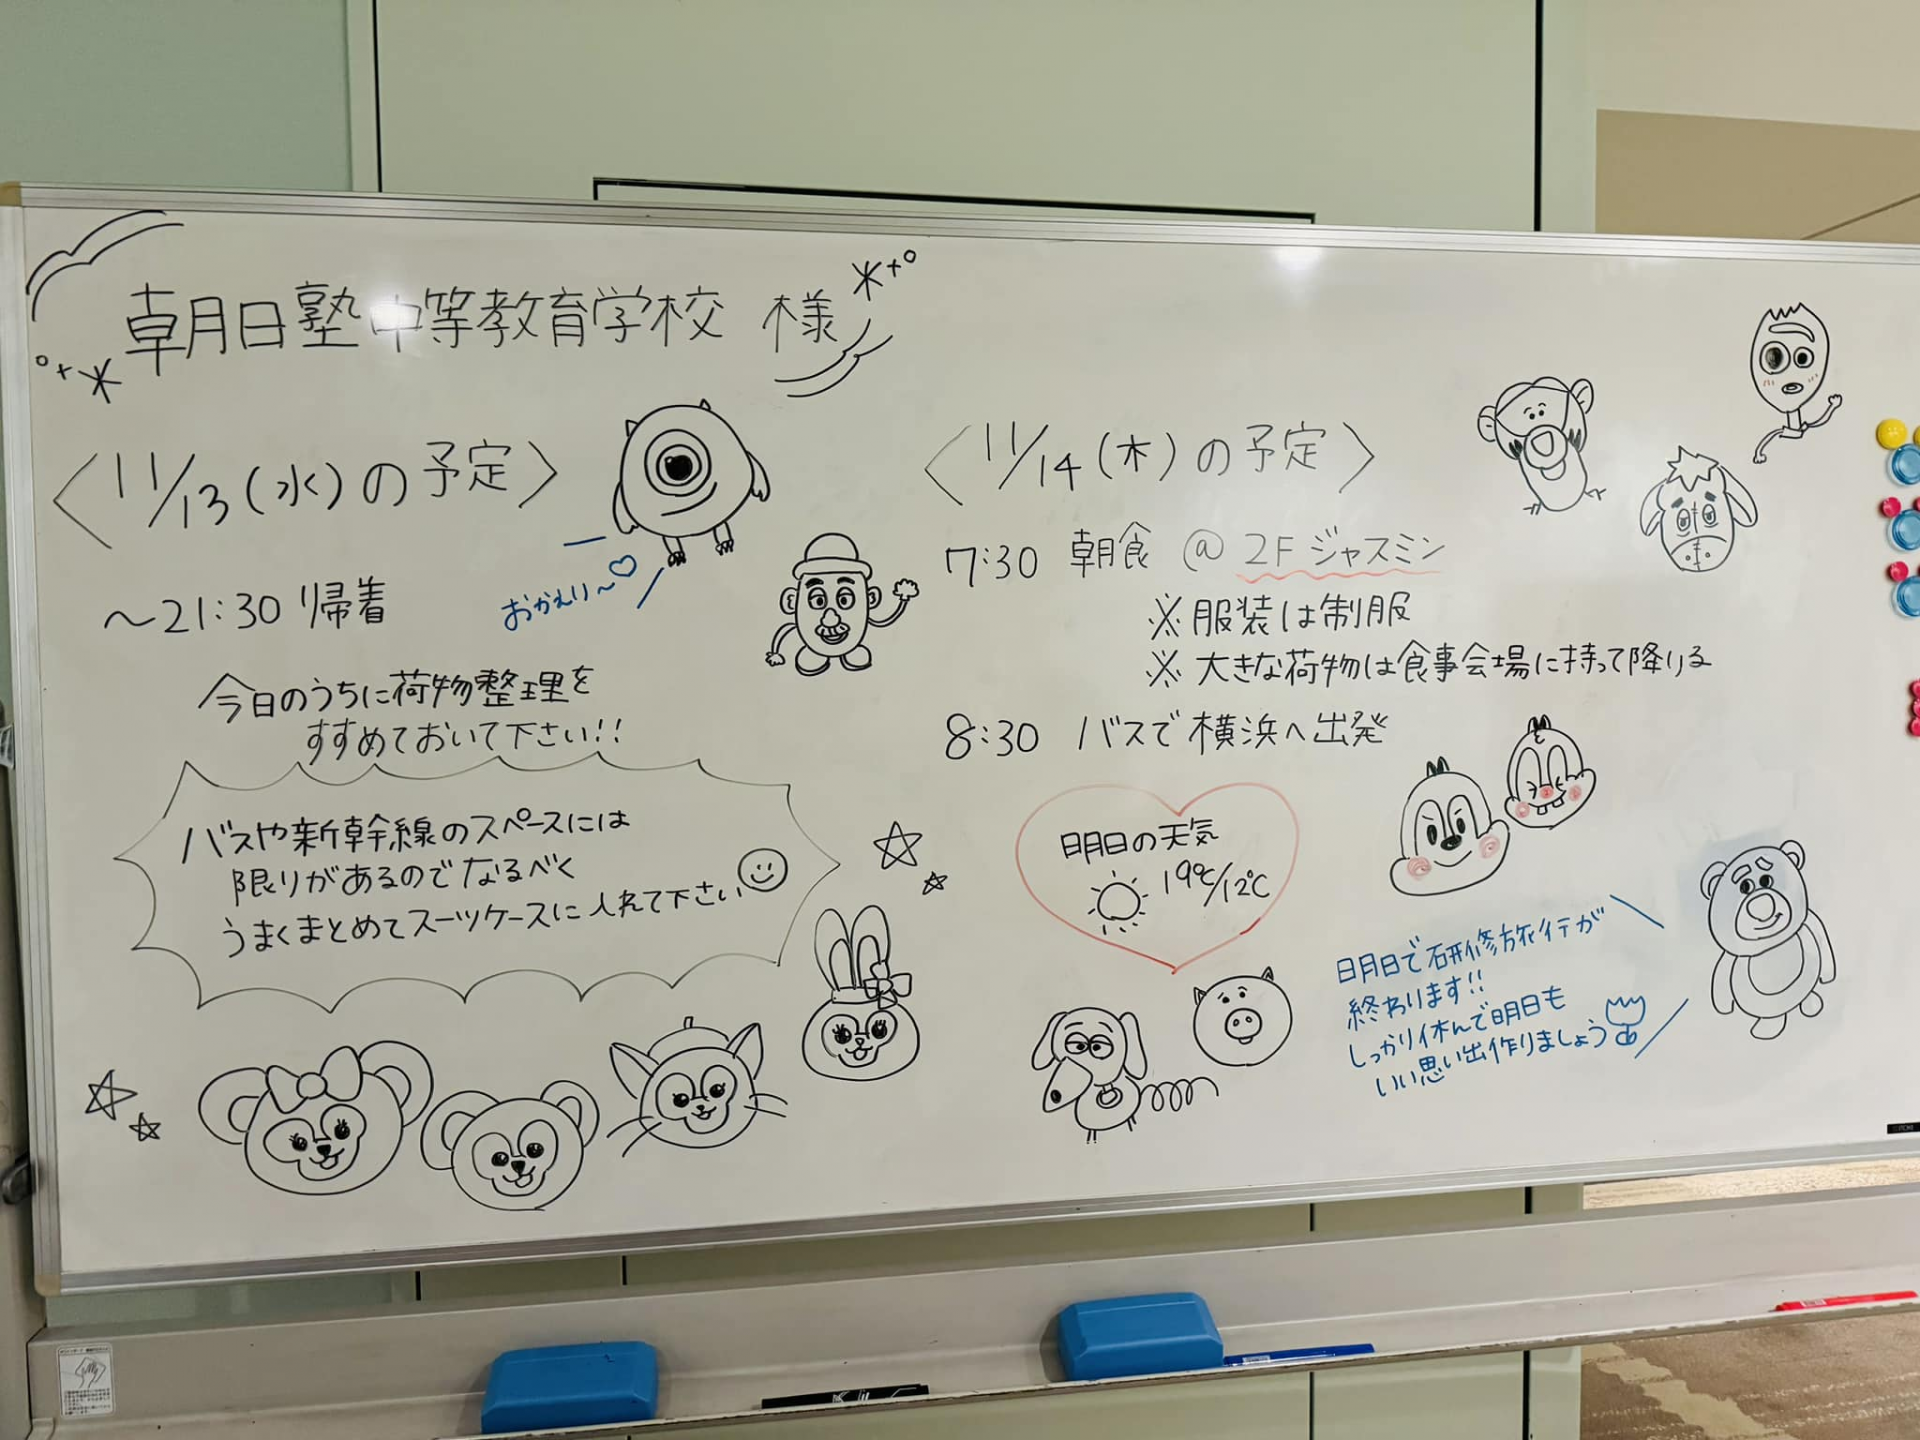 朝日塾中等教育学校 様
〈11/13(水)の予定〉
~21:30 帰着
おかえり~♡
今日のうちに荷物整理を
すすめておいて下さい!!
バスや新幹線のスペースには
限りがあるのでなるべく
うまくまとめてスーツケースに入れて下さい
〈11/14(木)の予定〉
7:30 朝食 @ 2F ジャスミン
※服装は制服
※ 大きな荷物は食事会場に持って降りる
8:30 バスで横浜へ出発
明日の天気
19℃/12℃
明日で研修旅行が
終わります!!
しっかり休んで明日も
いい思い出作りましょう